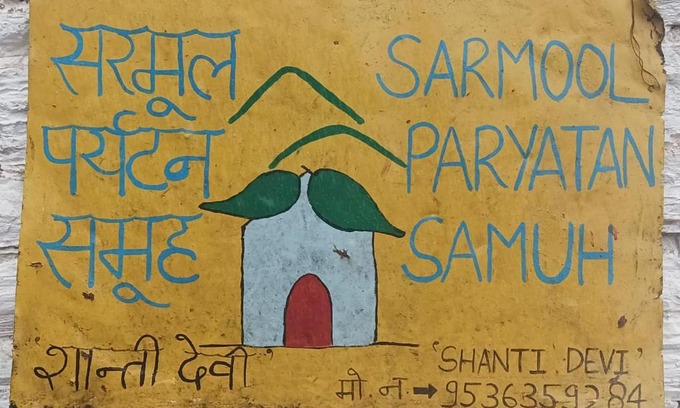 सरमूल
पर्यटन
समूह
SARMOOL
PARYATAN
SAMUH
'शान्ती देवी'
'SHANTI DEVI'
मो. न. → 9536359284